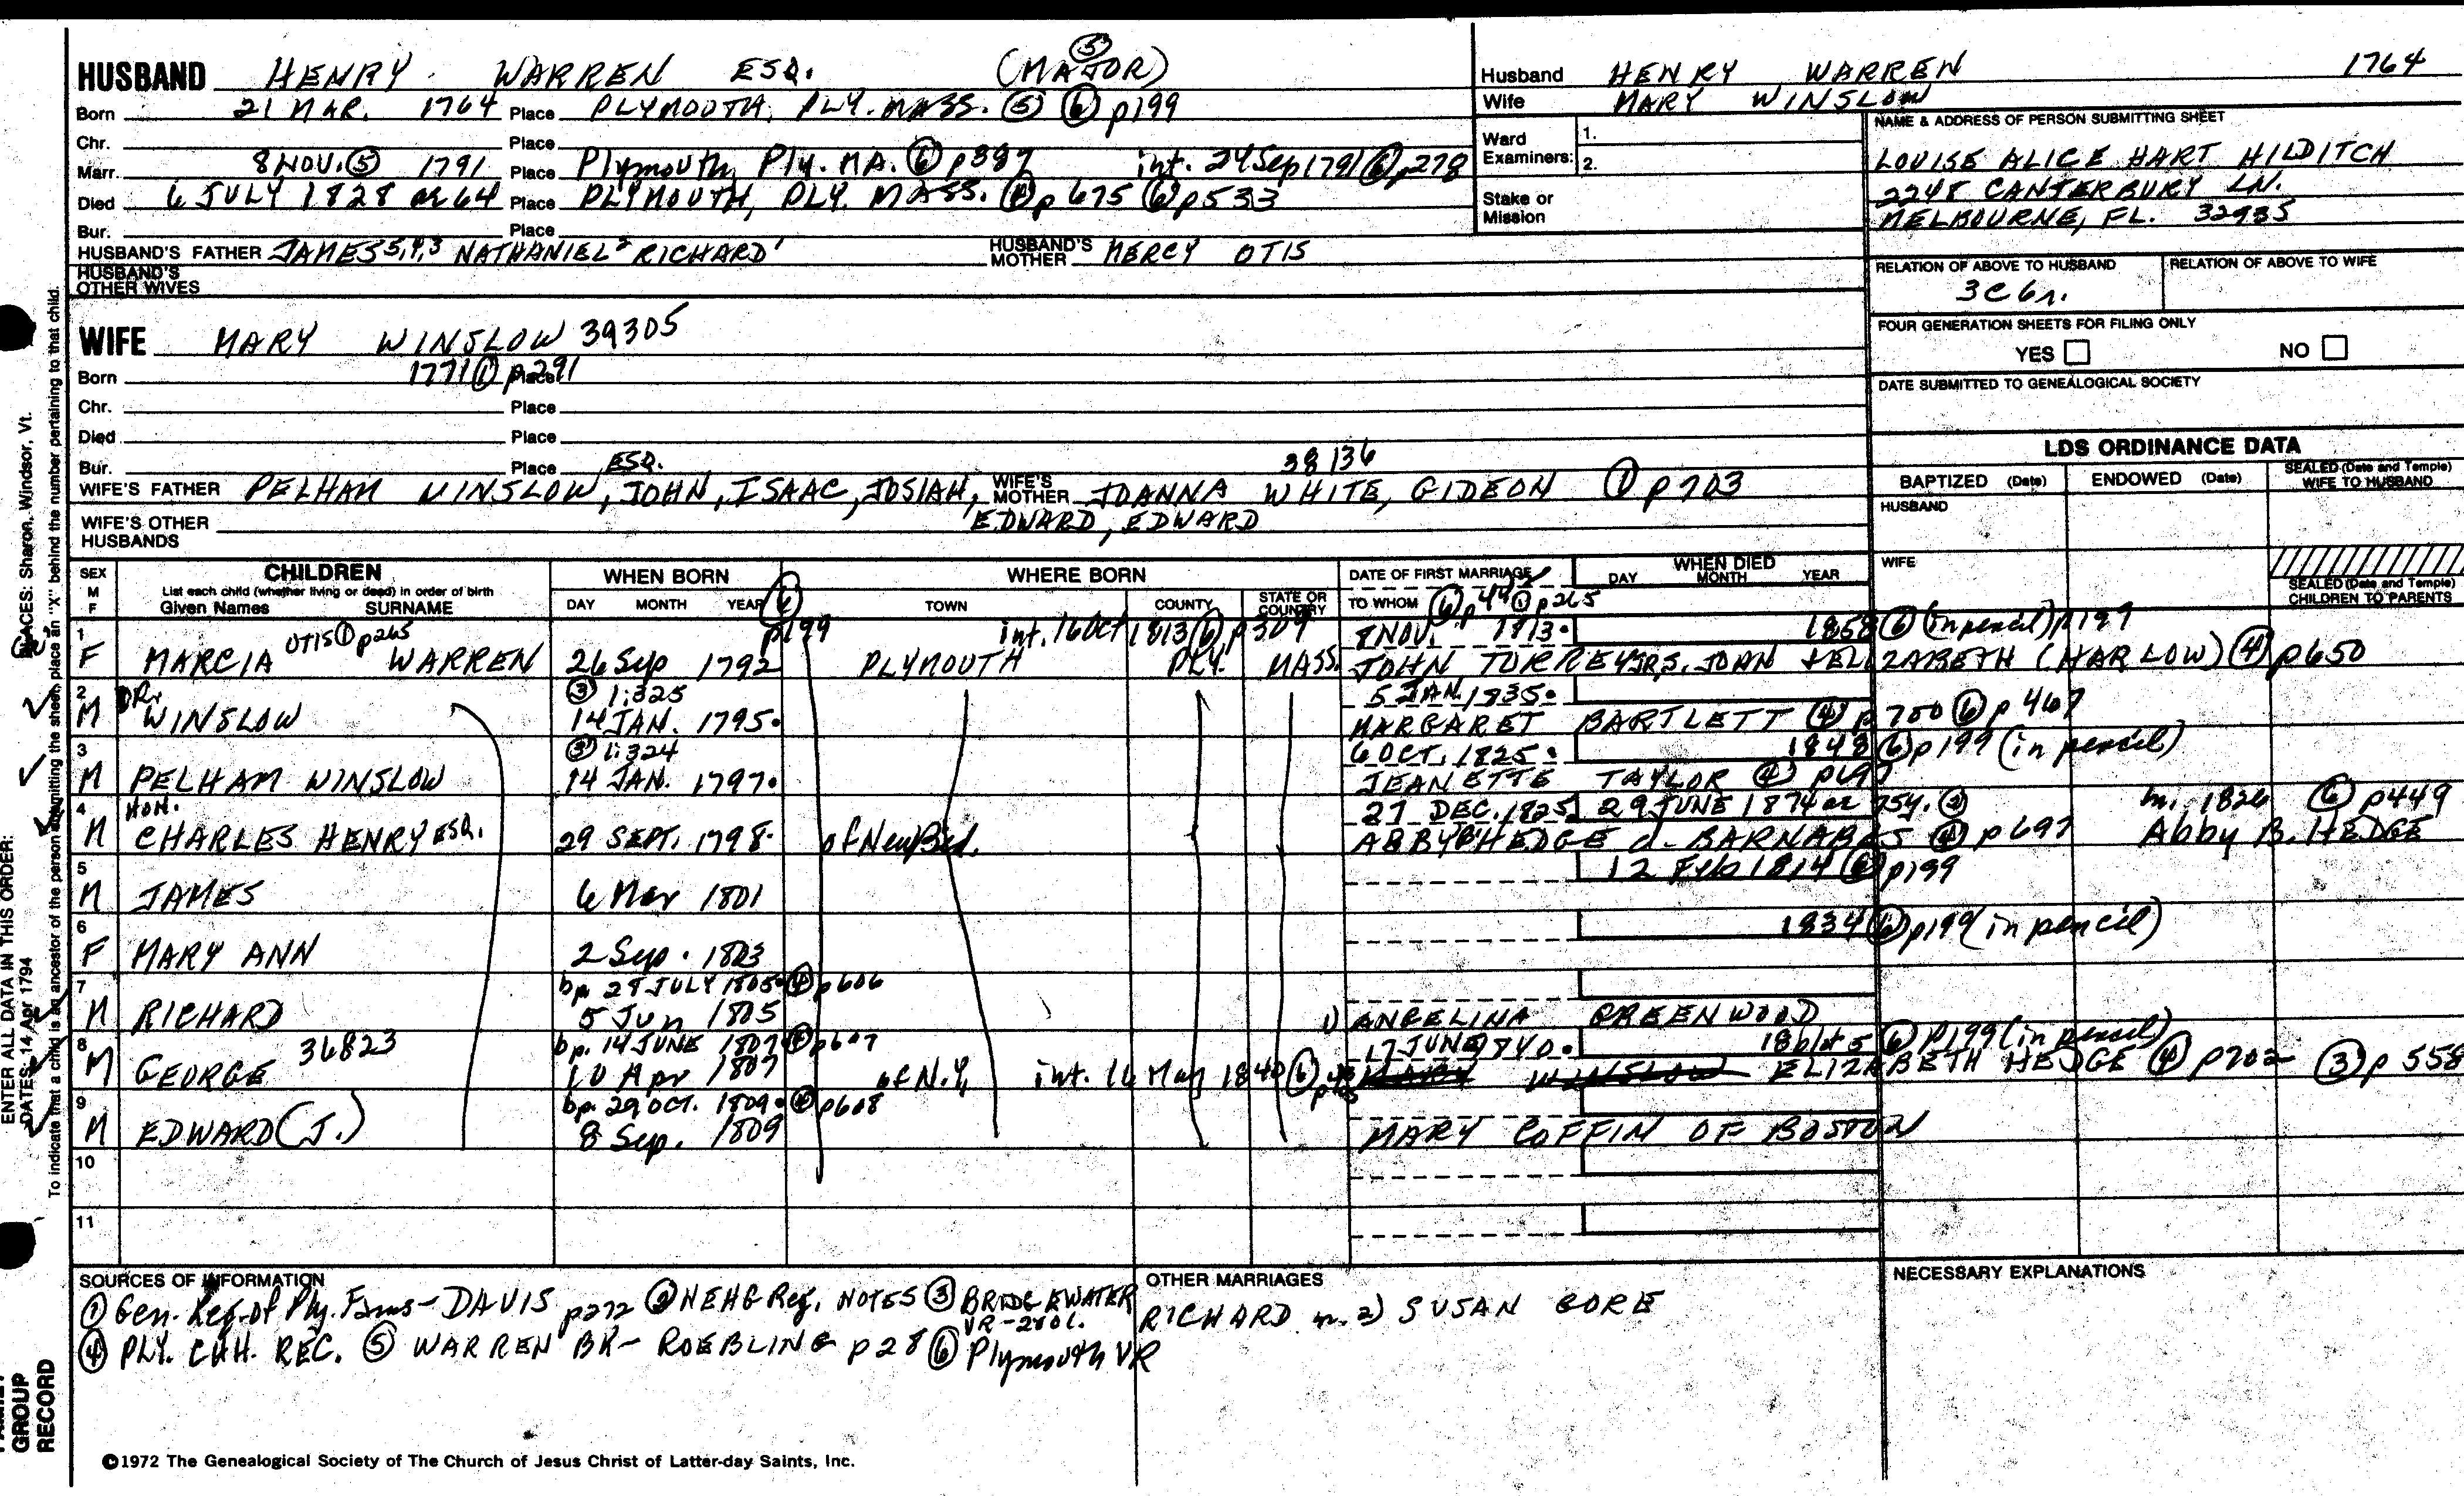 HUSBAND HENRY WARREN ESQ. (MAJOR) ⑤
Born 21 MAR. 1764 Place PLYMOUTH, PLY. MASS. ⑤ ⑥ p199
Chr. Place
Marr. 8 NOV. ⑤ 1791 Place Plymouth, Ply. MA. ⑥ p387 int. 24 Sep 1791 ⑥ p278
Died 6 JULY 1828 ae 64 Place PLYMOUTH, PLY. MASS. ④ p 675 ⑥ p533
Bur. Place
HUSBAND'S FATHER JAMES 5,4,3 NATHANIEL 2 RICHARD 1 HUSBAND'S MOTHER MERCY OTIS
HUSBAND'S OTHER WIVES
Husband HENRY WARREN 1764
Wife MARY WINSLOW
Ward Examiners: 1. 2.
Stake or Mission
NAME & ADDRESS OF PERSON SUBMITTING SHEET
LOUISE ALICE HART HILDITCH
2248 CANTERBURY LN.
MELBOURNE, FL. 32935
RELATION OF ABOVE TO HUSBAND RELATION OF ABOVE TO WIFE
3C 6r.
FOUR GENERATION SHEETS FOR FILING ONLY
YES NO
DATE SUBMITTED TO GENEALOGICAL SOCIETY
WIFE MARY WINSLOW 39305
Born 1771 ① p291 Place
Chr. Place
Died Place
Bur. Place ESQ. 38136
WIFE'S FATHER PELHAM WINSLOW, JOHN, ISAAC, JOSIAH, WIFE'S MOTHER JOANNA WHITE, GIDEON ① p703
EDWARD, EDWARD
WIFE'S OTHER HUSBANDS
LDS ORDINANCE DATA
BAPTIZED (Date) ENDOWED (Date) SEALED (Date and Temple) WIFE TO HUSBAND
HUSBAND
WIFE
SEALED (Date and Temple) CHILDREN TO PARENTS
SEX M F CHILDREN List each child (whether living or dead) in order of birth Given Names SURNAME
WHEN BORN DAY MONTH YEAR ⑥ p199
WHERE BORN TOWN COUNTY STATE OR COUNTRY
DATE OF FIRST MARRIAGE TO WHOM ① p265
WHEN DIED DAY MONTH YEAR
1 OTIS ① p265 int. 16 Oct 1813 ⑥ p309 8 NOV. 1813. 1858 ⑥ (in pencil) p199
F MARCIA WARREN 26 Sep 1792 PLYMOUTH PLY. MASS. JOHN TORREY JR, S. JOHN + ELIZABETH (HARLOW) ④ p650
2 DR. ③ 1:325 5 JAN. 1835.
M WINSLOW 14 JAN. 1795. MARGARET BARTLETT ④ p 700 ⑥ p 467
3 ③ 1:324 6 OCT. 1825. 1848 ⑥ p199 (in pencil)
M PELHAM WINSLOW 14 JAN. 1797. JEANETTE TAYLOR ④ p697
4 HON. 27 DEC. 1825 29 JUNE 1874 ae 75y. ② m. 1826 ⑥ p449
M CHARLES HENRY ESQ. 29 SEPT. 1798. of New Bed. ABBY B HEDGE d. BARNABAS ④ p697 Abby B. HEDGE
5 12 Feb 1814 ⑥ p199
M JAMES 6 Mar 1801
6 1834 ⑥ p199 (in pencil)
F MARY ANN 2 Sep. 1803
7 bp. 28 JULY 1805. ④ p606
M RICHARD 5 Jun 1805 1) ANGELINA GREENWOOD
8 36823 bp. 14 JUNE 1807 ④ p607 17 JUNE 1840. ⑥ p199 (in pencil)
M GEORGE 10 Apr 1807 of N.Y. int. 16 May 1840 ⑥ MARY WINSLOW ELIZABETH HEDGE ④ p702 ③ p 558
9 bp. 29 OCT. 1809. ④ p608
M EDWARD (J.) 8 Sep. 1809 MARY COFFIN OF BOSTON
10
11
SOURCES OF INFORMATION
① Gen. Reg. of Ply. Fams - DAVIS p272 ② NEHG Reg. NOTES ③ BRIDGEWATER VR - 2 vol.
④ PLY. CHH. REC. ⑤ WARREN BK - ROEBLING p28 ⑥ Plymouth VR
OTHER MARRIAGES
RICHARD m. 2) SUSAN GORE
NECESSARY EXPLANATIONS
©1972 The Genealogical Society of The Church of Jesus Christ of Latter-day Saints, Inc.
ENTER ALL DATA IN THIS ORDER:
DATES: 14 Apr 1794
PLACES: Sharon, Windsor, Vt.
To indicate that a child is an ancestor of the person submitting the sheet, place an "X" behind the number pertaining to that child.
GROUP
RECORD